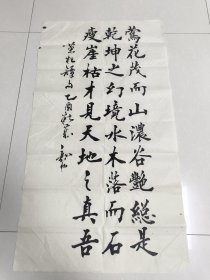 莺花茂而山浓谷艳总是
乾坤之幻境水木落而石
瘦崖枯才见天地之真吾
菜根谭句乙酉